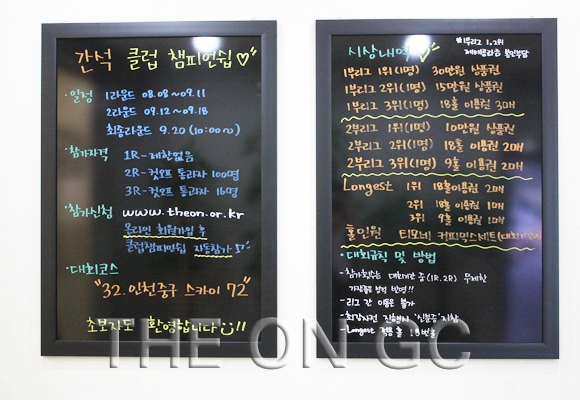 간석 클럽 챔피언쉽♡
·일정 1라운드 08.08~09.11
2라운드 09.12~09.18
최종라운드 9.20 (10:00~)
·참가자격 1R-제한없음
2R-컷오프 통과자 100명
3R-컷오프 통과자 16명
·참가신청 www.theon.or.kr
온라인 회원가입 후
클럽챔피언쉽 자동참가
·대회코스
"32. 인천중구 스카이 72"
초보자도 환영합니다!!
시상내역♡
1부리그 1, 2위
본인부담
1부리그 1위(1명) 30만원 상품권
1부리그 2위(1명) 15만원 상품권
1부리그 3위(1명) 18홀 이용권 3매
2부리그 1위(1명) 10만원 상품권
2부리그 2위(1명) 18홀 이용권 2매
2부리그 3위(1명) 9홀 이용권 2매
Longest 1위 18홀이용권 2매
2위 18홀 이용권 1매
3위 9홀 이용권 1매
홀인원 티모네 커피믹스세트
·대회규칙 및 방법
-참가횟수는 대회기간 중 (1R.2R) 무제한
가장좋은 성적 반영!!
-리그 간 이동은 불가
-최강자전 진행시 '신분증' 지참
-Longest 적용 홀 18번홀
THE ON GC